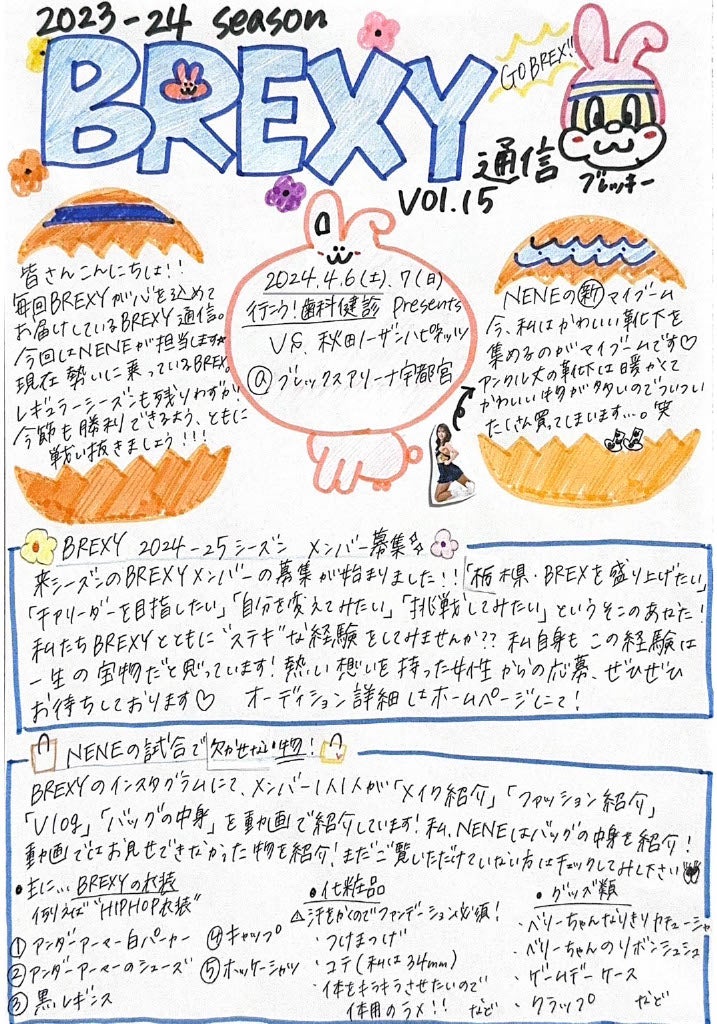 2023-24 season
BREXY
GO BREX!!
通信
ブレッキー
VOl.15
皆さんこんにちは!!
毎回BREXYが心を込めて
お届けしているBREXY通信。
今回はNENEが担当します☆
現在勢いに乗っているBREX。
レギュラーシーズンも残りわずか
今節も勝利できるよう、ともに
戦い抜きましょう!!!
2024.4.6(土).7(日)
行こう!歯科健診 Presents
VS. 秋田ノーザンハピネッツ
@ブレックスアリーナ宇都宮
NENEの新マイブーム
今、私はかわいい靴下を
集めるのがマイブームです♡
アンクル丈の靴下は暖かくて
かわいい物が多いのでついつい
たくさん買ってしまいます…。笑
BREXY 2024-25シーズン メンバー募集
来シーズンのBREXYメンバーの募集が始まりました!!「栃木県・BREXを盛り上げたい」
「チアリーダーを目指したい」「自分を変えてみたい」「挑戦してみたい」というそこのあなた!
私たちBREXYとともに"ステキ"な経験をしてみませんか?? 私自身もこの経験は
一生の宝物だと思っています!熱い想いを持った女性からの応募、ぜひぜひ
お待ちしております♡ オーディション詳細はホームページにて!
NENEの試合で欠かせない物!
BREXYのインスタグラムにて、メンバー1人1人が「メイク紹介」「ファッション紹介」
「Vlog」「バッグの中身」を動画で紹介しています!私、NENEはバッグの中身を紹介!
動画ではお見せできなかった物を紹介!まだご覧いただけていない方はチェックしてみて下さい
・主に… BREXYの衣装
例えば"HIPHOP衣装"
①アンダーアーマー白パーカー
②アンダーアーマーのシューズ
③黒レギンス
④キャップ
⑤ホッケーシャツ
・化粧品
⚠汗をかくのでファンデーション必須!
・つけまつげ
・コテ(私は34mm)
・体もキラキラさせたいので
体用のラメ!! など
・グッズ類
・ベリーちゃんなりきりカチューシャ
・ベリーちゃんのリボンシュシュ
・ゲームデーケース
・クラップ など